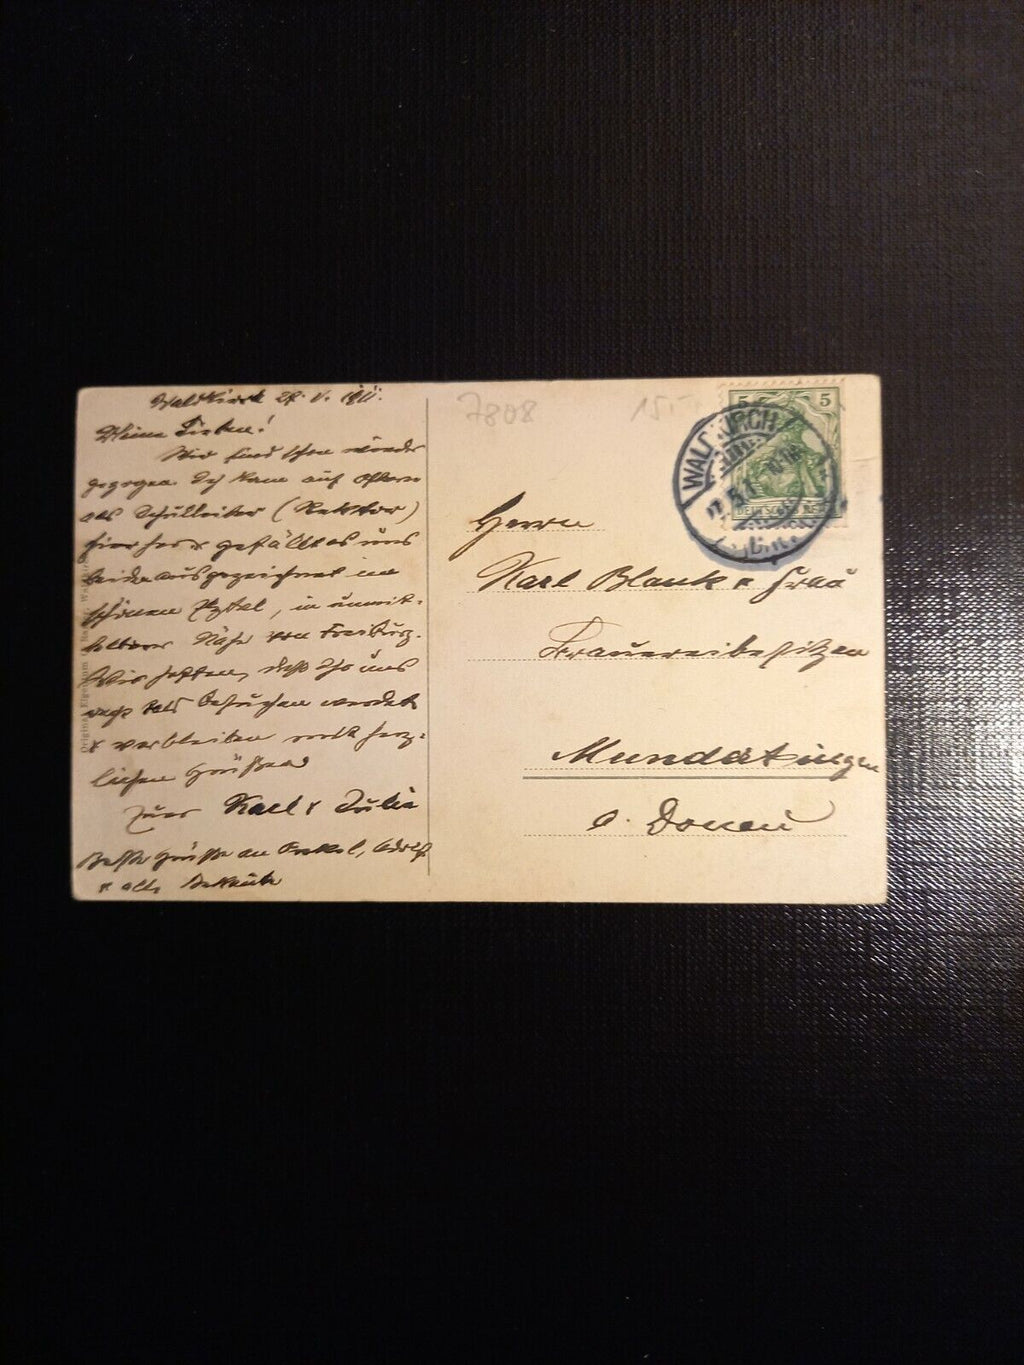 Waldkirch 28. V. 1911.
Meine Lieben!
Wir sind schon wieder
gezogen. Ich kam auf Ostern
als Schulleiter (Rektor)
hierher & gefällt es uns
beiden ausgezeichnet im
schönen Elztal, in unmit-
telbarer Nähe von Freiburg.
Wir hoffen, daß Ihr uns
auch bald besuchen werdet
& verbleiben mit herz-
lichen Grüßen
Euer Karl & Julie
Beste Grüße an Onkel,
& alle Bekannte
7808
15
5 5
WALDKIRCH
DEUTSCHES REICH
Herrn
Karl Blank & Frau
Brauereibesitzer
Munderkingen
a. Donau